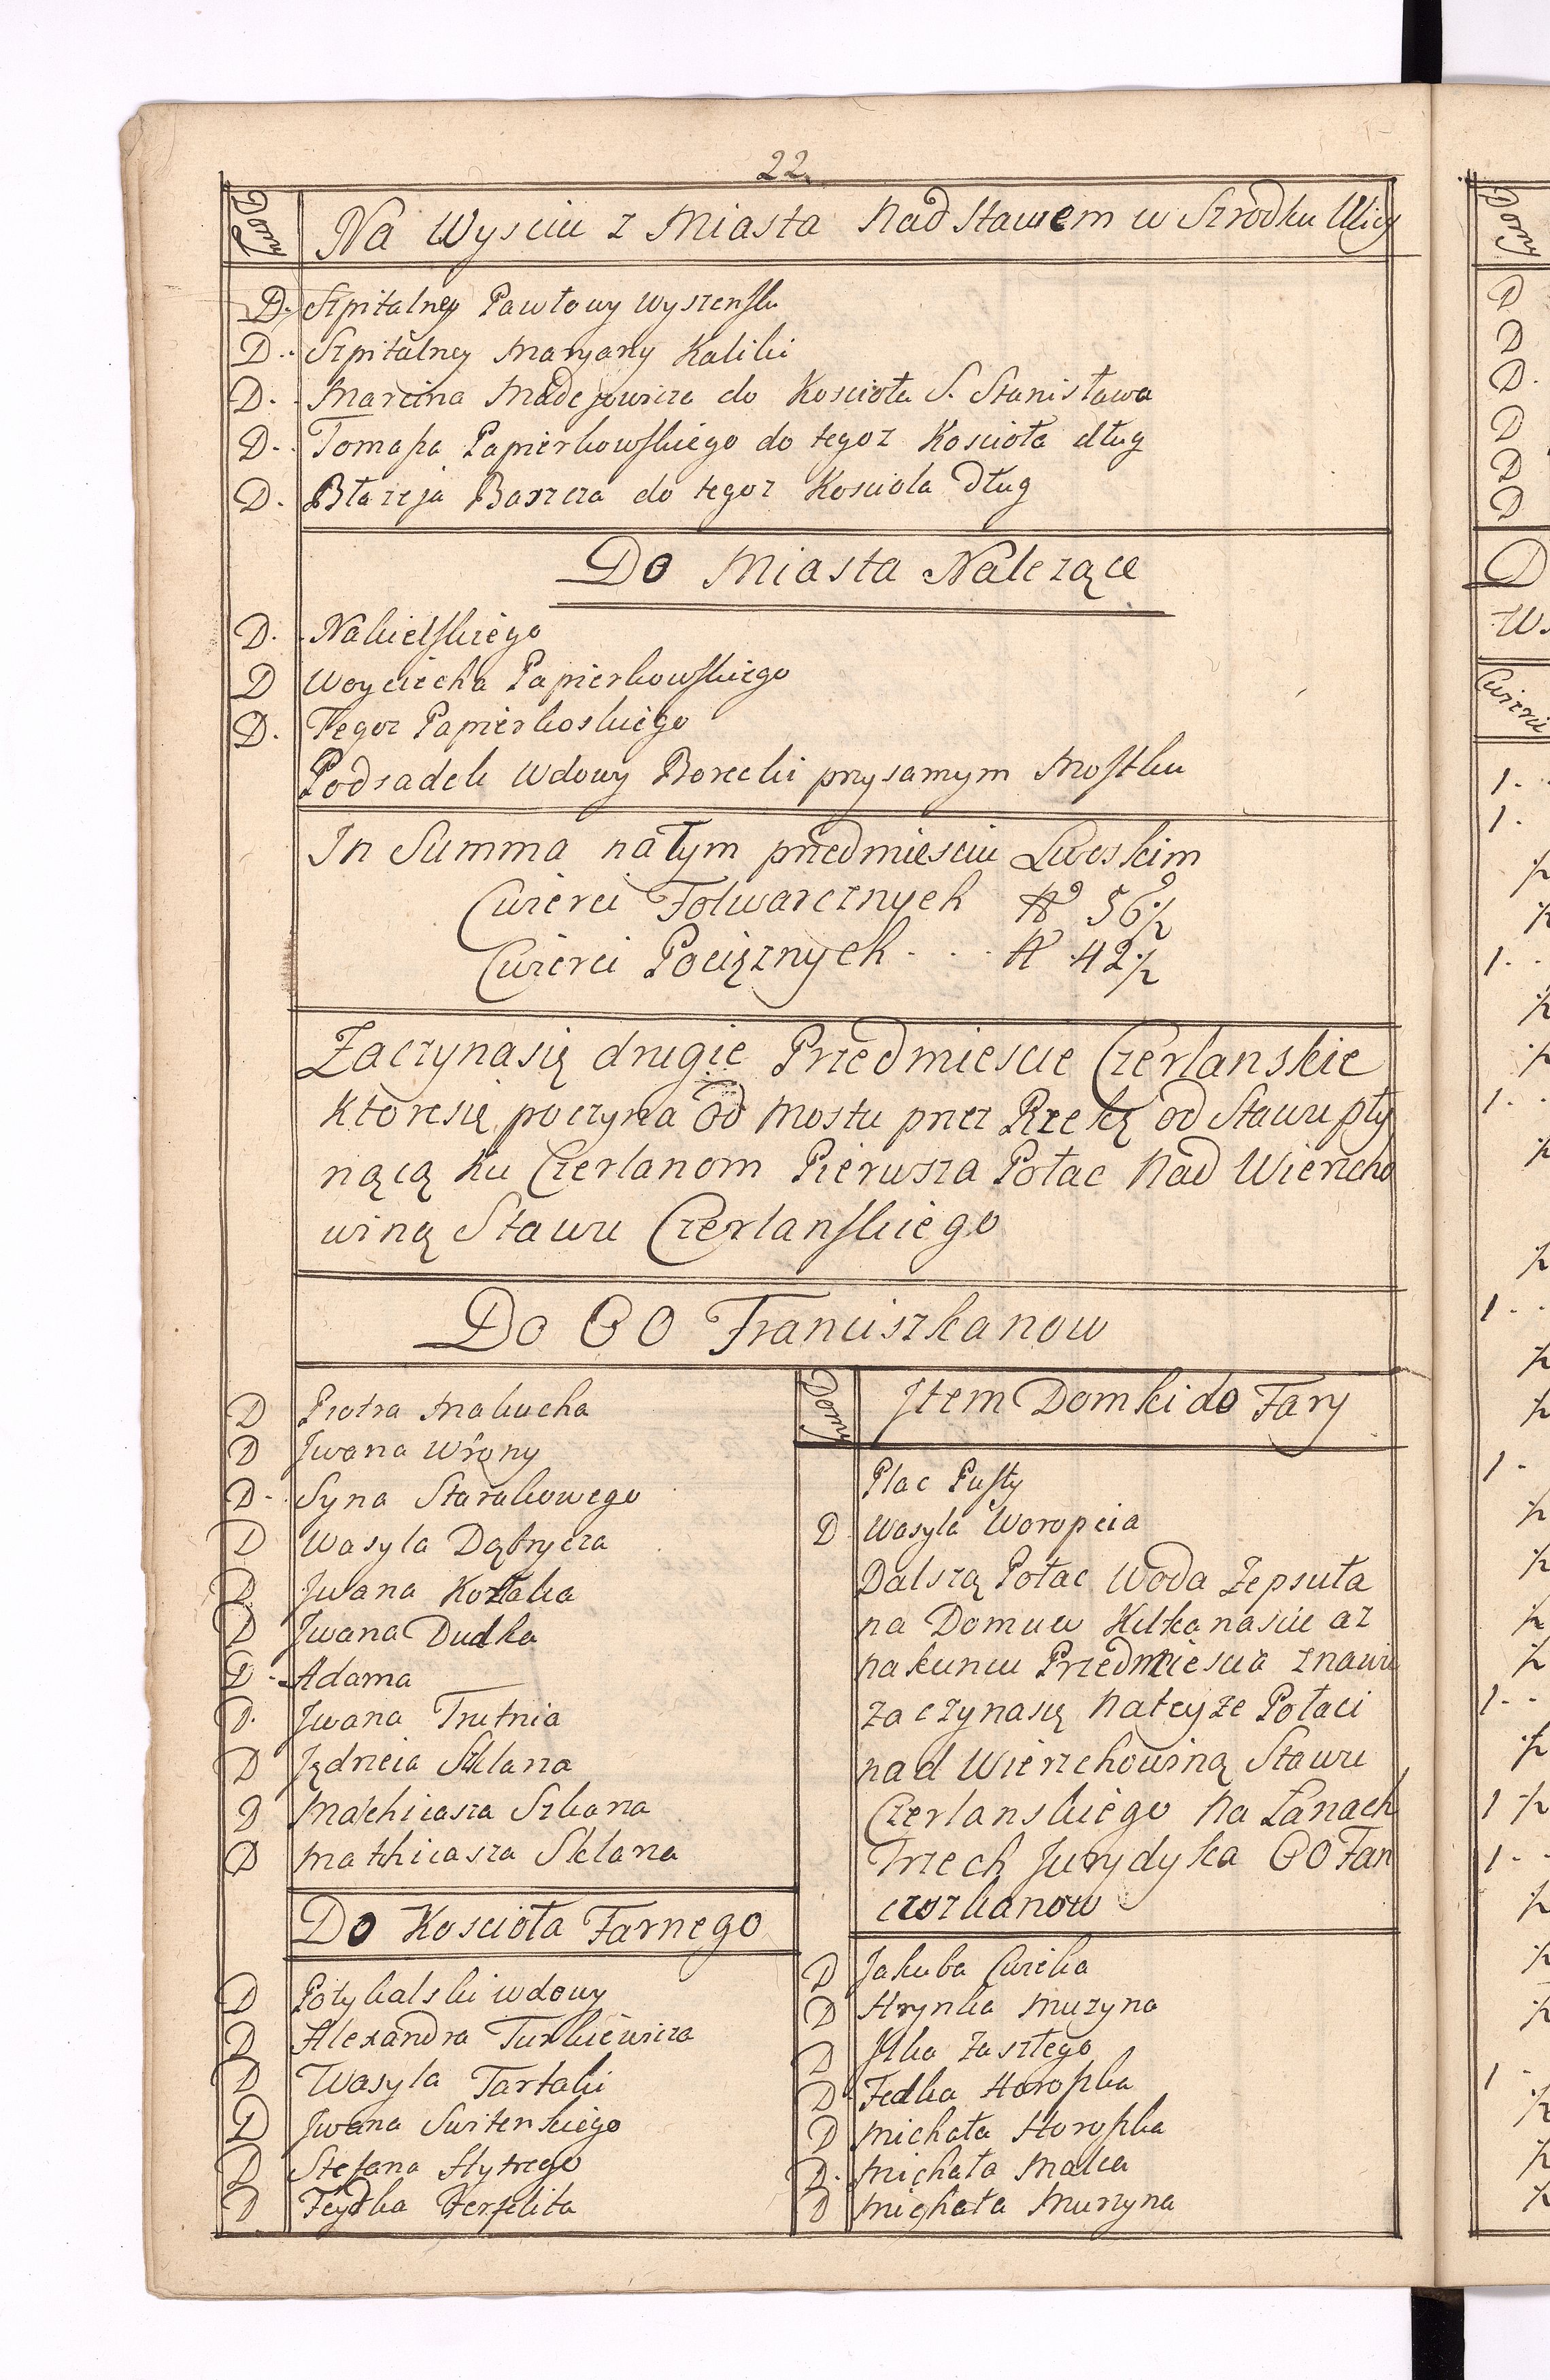 22.
Domy
Na Wysciu z Miasta Nad Stawem w Szrodku Ulicy
D. Szpitalney Pawłowy Wyszensku
D. Szpitalney Maryany Kaliki
D. Marcina Madejowicza do Koscioła S. Stanisława
D. Tomasza Papierkowskiego do tegoz Koscioła dług
D. Błazeja Barszcza do tegoz Kosciola Dług
Do Miasta Nalezące
D. Nakielskiego
D Woyciecha Papierkowskiego
D. Tegoz Papierkoskiego
Podsadek Wdowy Borecki przysamym Mostku
In Summa natym przedmiesciu Lwoskim
Cwierci Folwarcznych No 56 ½
Cwierci Pociąznych . . . No 42 ½
Zaczynasię drugie Przedmiescie Czerlanskie
Ktoresię poczyna od Mostu przez Rzekę od Stawu pły
nącą Ku Czerlanom Pierwsza Połac Nad Wierzcho
winą Stawu Czerlanskiego
Do OO Franciszkanow
D Piotra Makucha
D Jwana Wrony
D Syna Starukowego
D Wasyla Dąbrycza
D Jwana Kozłaka
D Jwana Dudka
D Adama
D. Jwana Trutnia
D Jędrzeia Szklarza
D Mathiasza Szkarza
D Mathiasza Sklarza
Do Koscioła Farnego
D Potykalski wdowy
D Alexandra Turkiewicza
D Wasyla Tartaki
D Jwana Switenskiego
D Stefana Hytrego
D Feydka
Domy
Jtem Domki do Fary
Plac Pusty
D Wasyla Woropcia
Dalszą Połac Woda Zepsuła
na Domuw Kilkanascie az
nakuncu Przedmiescia znawu
zaczynasię Nateyze Połaci
nad Wierzchowiną Stawu
Czerlanskiego Na Łanach
Trzech Jurydyka OO Fan
ciszkanow
D Jakuba Cwieka
D Hrynka Muzyna
D Jlka Zaszłego
D Fedka Horoszka
D Michała Horoszka
D. Michała Malca
D Michała Murzyna